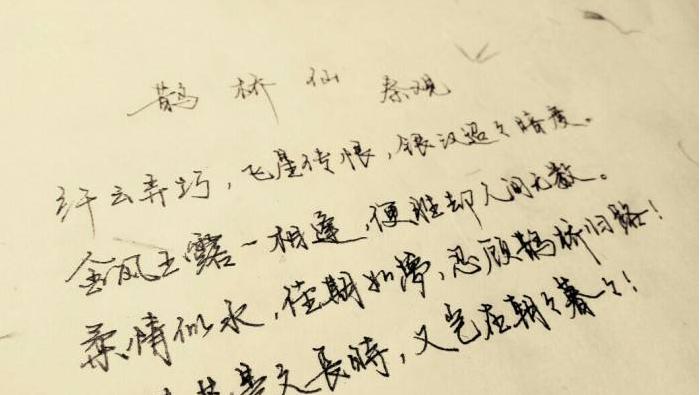 鹊桥仙 秦观
纤云弄巧，飞星传恨，银汉迢々暗度。
金风玉露一相逢，便胜却人间无数。
柔情似水，佳期如夢，忍顾鹊桥归路！
若是久長時，又岂在朝々暮々！